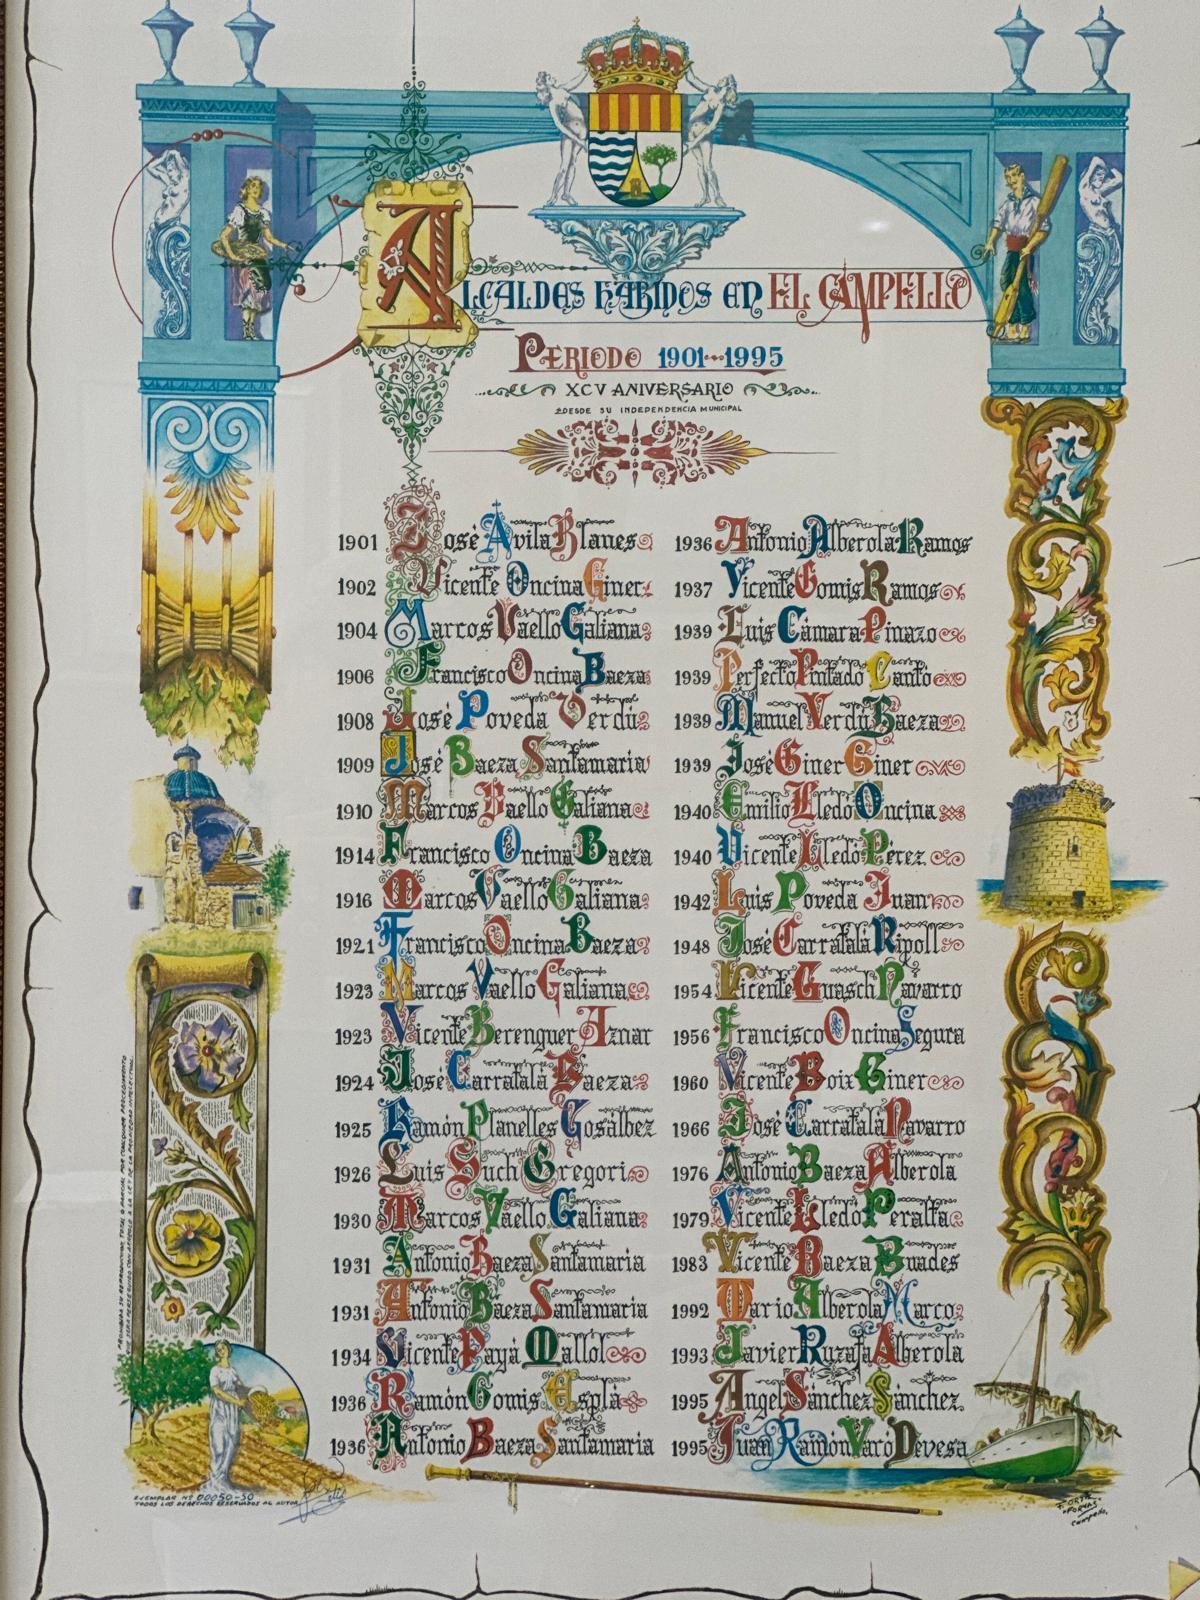 ALCALDES HABIDOS EN EL CAMPELLO
PERIODO 1901-1995
XCV ANIVERSARIO
DESDE SU INDEPENDENCIA MUNICIPAL
1901 José Avila Blanes
1902 Vicente Oncina Giner
1904 Marcos Vaello Galiana
1906 Francisco Oncina Baeza
1908 José Poveda Verdú
1909 José Baeza Santamaria
1910 Marcos Vaello Galiana
1914 Francisco Oncina Baeza
1916 Marcos Vaello Galiana
1921 Francisco Oncina Baeza
1923 Marcos Vaello Galiana
1923 Vicente Berenguer Aznar
1924 José Carratalá Baeza
1925 Ramón Planelles Gosálbez
1926 Luis Such Gregori
1930 Marcos Vaello Galiana
1931 Antonio Baeza Santamaria
1931 Antonio Baeza Santamaria
1934 Vicente Payá Mallol
1936 Ramón Gomis Esplá
1936 Antonio Baeza Santamaria
1936 Antonio Alberola Ramos
1937 Vicente Gomis Ramos
1939 Luis Cámara Pinazo
1939 Perfecto Pintado Cantó
1939 Manuel Verdú Baeza
1939 José Giner Giner
1940 Emilio Lledó Oncina
1940 Vicente Lledó Pérez
1942 Luis Poveda Juan
1948 José Carratalá Ripoll
1954 Vicente Guasch Navarro
1956 Francisco Oncina Segura
1960 Vicente Boix Giner
1966 José Carratalá Navarro
1976 Antonio Baeza Alberola
1979 Vicente Lledó Peralta
1983 Vicente Baeza Buades
1992 Mario Alberola Marco
1993 Javier Ruzafa Alberola
1995 Angel Sánchez Sánchez
1995 Juan Ramón Varó Devesa
PROHIBIDA SU REPRODUCCION TOTAL O PARCIAL POR CUALQUIER PROCEDIMIENTO
EJEMPLAR Nº 00050-50
TODOS LOS DERECHOS RESERVADOS AL AUTOR